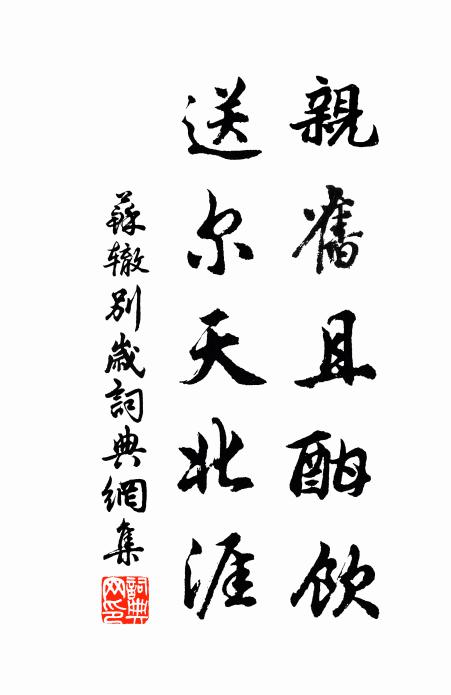 親舊且酣飲
送尔天北涯
蘇辙别歲詞典網集
詞典網印